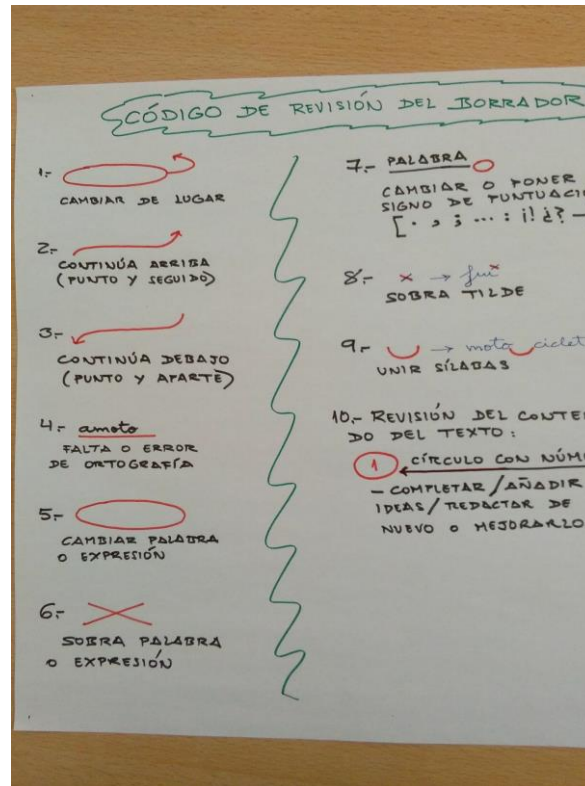 CÓDIGO DE REVISIÓN DEL BORRADOR
1.-
CAMBIAR DE LUGAR
2.-
CONTINÚA ARRIBA
(PUNTO Y SEGUIDO)
3.-
CONTINÚA DEBAJO
(PUNTO Y APARTE)
4.- amoto
FALTA O ERROR
DE ORTOGRAFÍA
5.-
CAMBIAR PALABRA
O EXPRESIÓN
6.-
SOBRA PALABRA
O EXPRESIÓN
7.- PALABRA
CAMBIAR O PONER
SIGNO DE PUNTUACIÓ
[. , ; ... : ¡! ¿? —
8.- x → fui
SOBRA TILDE
9.- → moto ciclet
UNIR SÍLABAS
10.- REVISIÓN DEL CONTE
DO DEL TEXTO:
1 CÍRCULO CON NÚM
- COMPLETAR/AÑADIR
IDEAS/REDACTAR DE
NUEVO O MEJORARLO